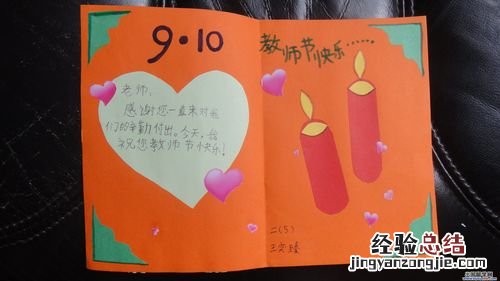 9·10
老师、
感谢您一直来对我
们的辛勤付出。今天,我
祝您教师节快乐!
教师节快乐……
二(5)
经验总结
jingyanzongjie.com